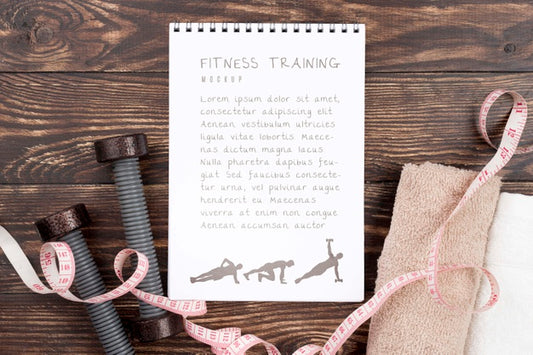 FITNESS TRAINING
MOCKUP
Lorem ipsum dolor sit amet,
consectetur adipiscing elit
Aenean vestibulum ultricies
ligula vitae lobortis Maece-
nas dictum magna lacus
Nulla pharetra dapibus feu-
giat Sed faucibus consecte-
tur urna, vel pulvinar augue
hendrerit eu Maecenas
viverra at enim non congue
Aenean accumsan auctor